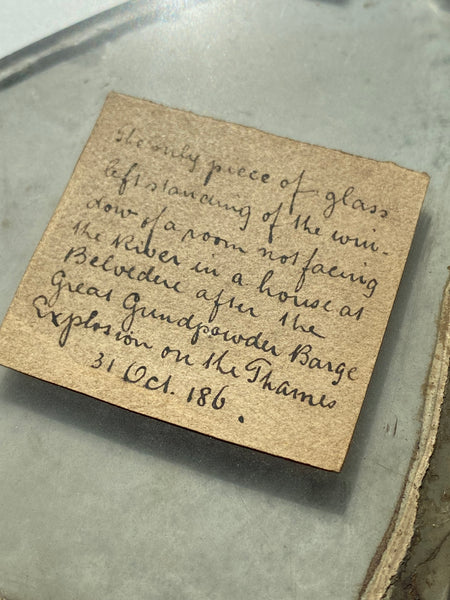 The only piece of glass
left standing of the win-
dow of a room not facing
the River in a house at
Belvedere after the
Great Gundpowder Barge
Explosion on the Thames
31 Oct. 186 .